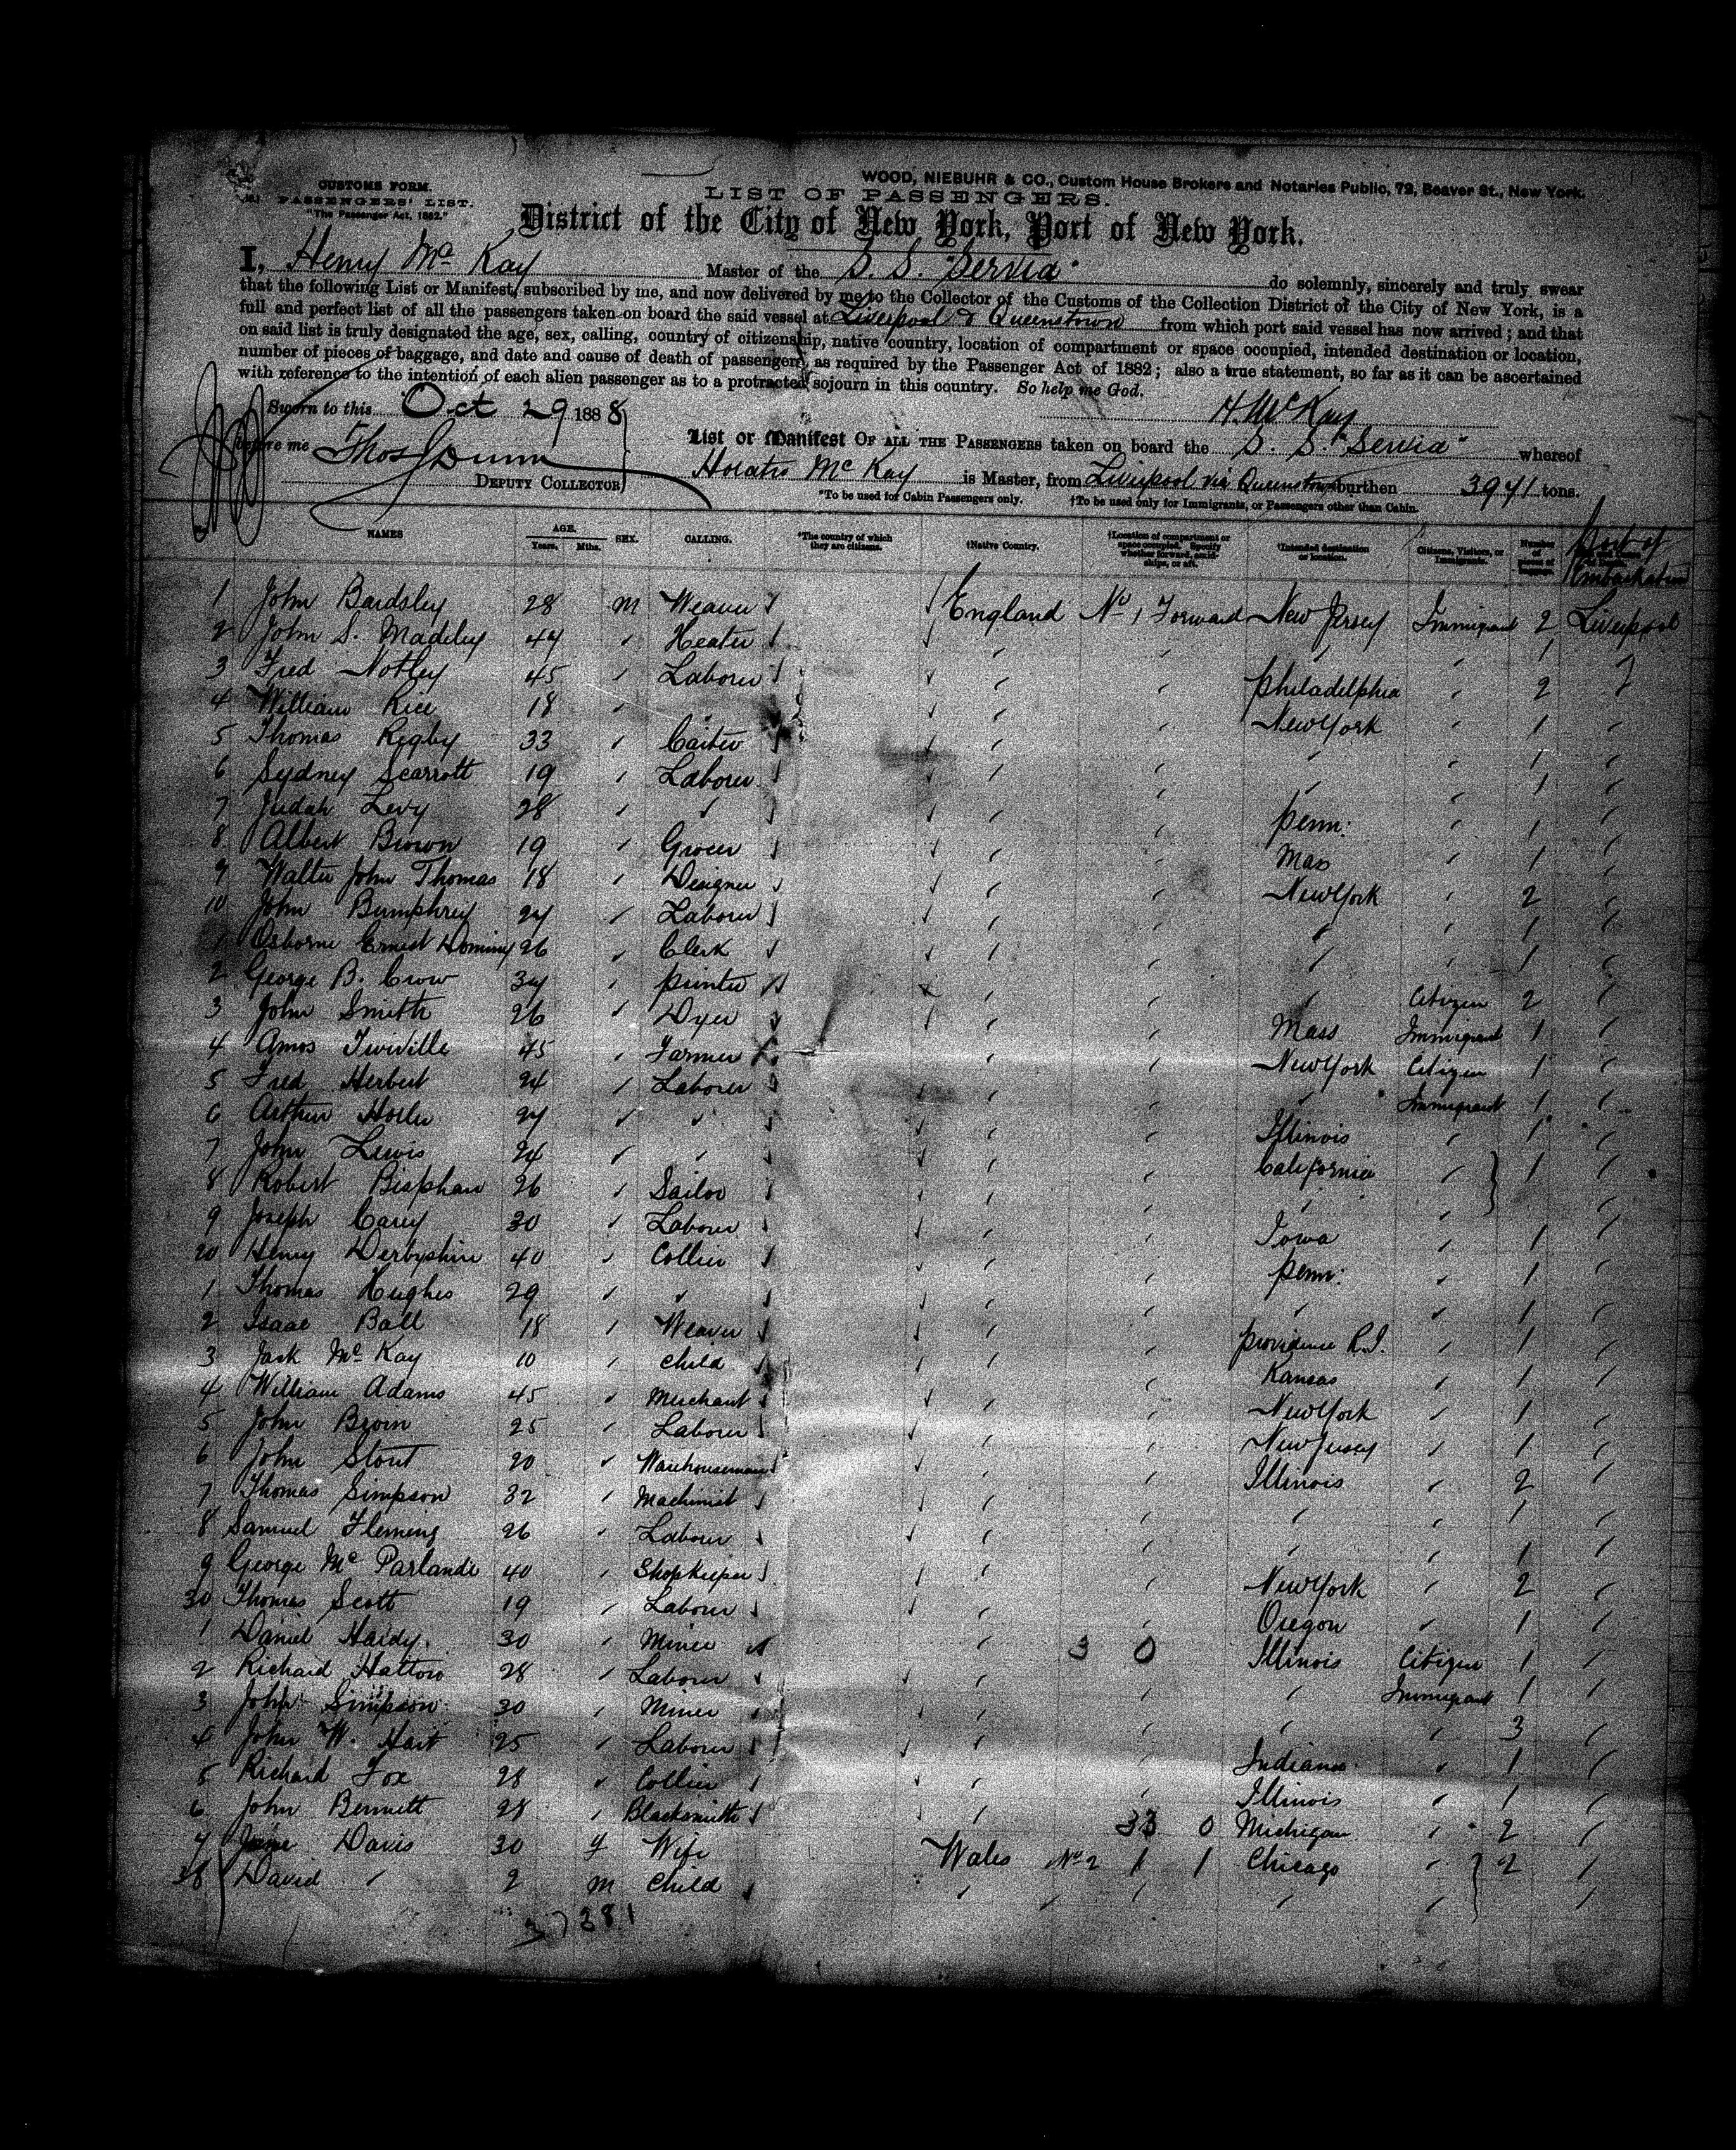 WOOD, NIEBUHR & CO., Custom House Brokers and Notaries Public, 72, Beaver St., New York.
CUSTOMS FORM.
PASSENGERS' LIST.
"The Passenger Act, 1882."
LIST OF PASSENGERS.
District of the City of New York, Port of New York.
I, Henry Mc Kay Master of the S. S. "Servia" do solemnly, sincerely and truly swear
that the following List or Manifest, subscribed by me, and now delivered by me to the Collector of the Customs of the Collection District of the City of New York, is a
full and perfect list of all the passengers taken on board the said vessel at Liverpool & Queenstown from which port said vessel has now arrived; and that
on said list is truly designated the age, sex, calling, country of citizenship, native country, location of compartment or space occupied, intended destination or location,
number of pieces of baggage, and date and cause of death of passengers, as required by the Passenger Act of 1882; also a true statement, so far as it can be ascertained
with reference to the intention of each alien passenger as to a protracted sojourn in this country. So help me God.
Sworn to this Oct 29 1888 H. McKay
before me Thos J Dunn
DEPUTY COLLECTOR
List or Manifest OF ALL THE PASSENGERS taken on board the S. S. "Servia" whereof
Horatio Mc Kay is Master, from Liverpool via Queenstown burthen 3971 tons.
*To be used for Cabin Passengers only. †To be used only for Immigrants, or Passengers other than Cabin.
NAMES AGE. Years. Mths. SEX. CALLING. *The country of which they are citizens. †Native Country. †Location of compartment or space occupied. Specify whether forward, amidships, or aft. †Intended destination or location. Citizens, Visitors, or Immigrants. Number of pieces of baggage. Port of Embarkation
1 John Bardsley 28 m Weaver England No 1 Forward New Jersey Immigrant 2 Liverpool
2 John S. Madeley 47 " Heater " " " " 1 "
3 Fred Notley 45 " Laborer " " Philadelphia " 2 "
4 William Rice 18 " " " " New York " 1 "
5 Thomas Rigby 33 " Carter " " " " 1 "
6 Sydney Scarrott 19 " Laborer " " " " 1 "
7 Judah Levy 28 " " " " Penn: " 1 "
8 Albert Brown 19 " Grocer " " Mass " 1 "
9 Walter John Thomas 18 " Designer " " New York " 2 "
10 John Bumphrey 27 " Laborer " " " " 1 "
1 Osborne Ernest Dominy 26 " Clerk " " " " 1 "
2 George B. Crow 34 " Printer " " Citizen 2 "
3 John Smith 26 " Dyer " " Mass Immigrant 1 "
4 Amos 45 " Farmer " " New York Citizen 1 "
5 Fred Herbert 24 " Laborer " " " Immigrant 1 "
6 Arthur 27 " " " " Illinois " 1 "
7 John Lewis 24 " " " " California " 1 "
8 Robert Bispham 26 " Sailor " " " " "
9 Joseph Carey 30 " Laborer " " Iowa " 1 "
20 Henry Derbyshire 40 " Collier " " Penn: " 1 "
1 Thomas Hughes 29 " " " " " " 1 "
2 Isaac Ball 18 " Weaver " " Providence R.I. " 1 "
3 Jack Mc Kay 10 " Child " " Kansas " 1 "
4 William Adams 45 " Merchant " " New York " 1 "
5 John Brown 25 " Laborer " " New Jersey " 1 "
6 John Stout 20 " Warehouseman " " Illinois " 2 "
7 Thomas Simpson 32 " Machinist " " " " 1 "
8 Samuel Fleming 26 " Laborer " " " " 1 "
9 George Mc Parlande 40 " Shopkeeper " " New York " 2 "
30 Thomas Scott 19 " Laborer " " Oregon " 1 "
1 Daniel Hardy 30 " Miner " 3 0 Illinois Citizen 1 "
2 Richard Hatton 28 " Laborer " " " Immigrant 1 "
3 John Simpson 30 " Miner " " " " 3 "
4 John W. Hart 25 " Laborer " " Indiana " 1 "
5 Richard Fox 28 " Collier " " Illinois " 1 "
6 John Bennett 28 " Blacksmith " 33 0 Michigan " 2 "
7 Jane Davis 30 f Wife Wales No 2 1 1 Chicago " 2 "
38 David " 2 m Child " " " " "
37381